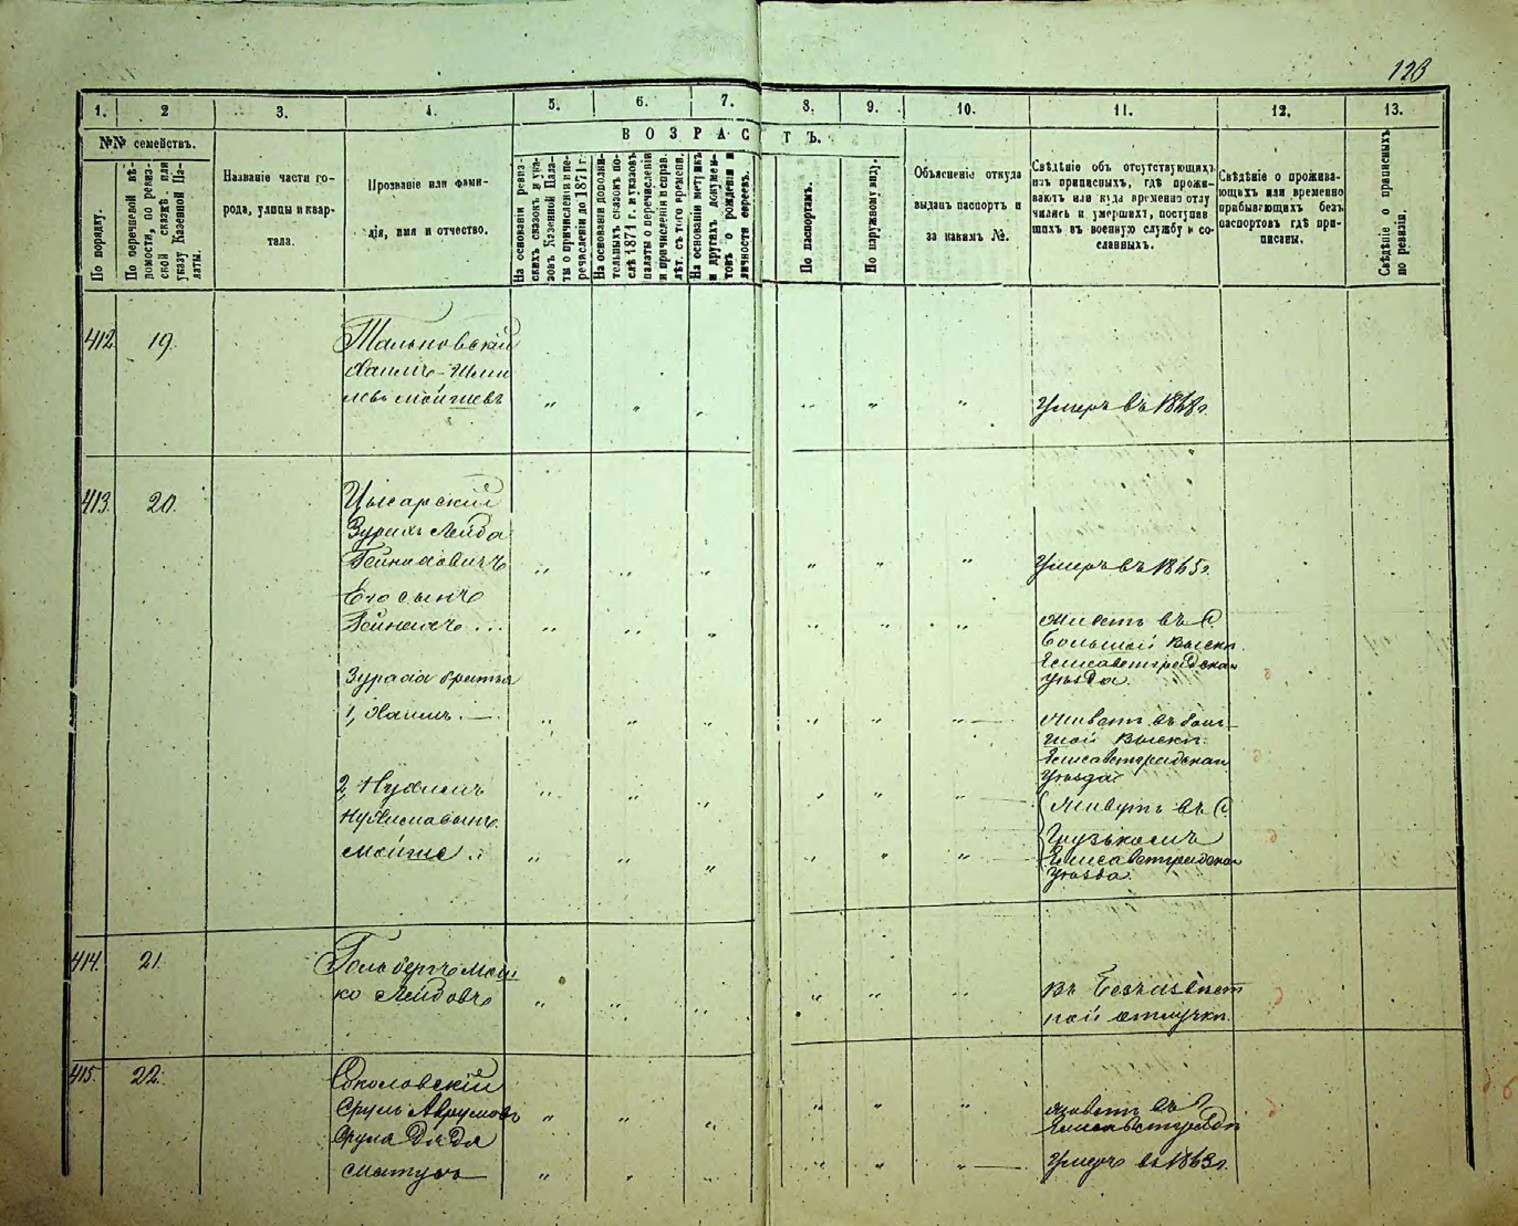 128
1. 2 3. 4. 5. 6. 7. 8. 9. 10. 11. 12. 13.
№№ семействъ.
ВОЗРАСТЪ.
По порядку.
По перечневой вѣ-
домости, по ревиз-
ской сказкѣ или
указу Казенной Па-
латы.
Названіе части го-
рода, улицы и квар-
тала.
Прозваніе или фами-
лія, имя и отчество.
На основаніи ревиз-
скихъ сказокъ и ука-
зовъ Казенной Пала-
ты о причисленіи и пе-
речисленіи до 1871 г.
На основаніи дополни-
тельныхъ сказокъ по-
слѣ 1871 г. и указовъ
палаты о перечисленіи
и причисленіи и справ.
лѣт. съ того времени.
На основаніи метрикъ
и другихъ докумен-
товъ о рожденіи и
личности евреевъ.
По паспортамъ.
По наружному виду.
Объясненіе откуда
выданъ паспортъ и
за какимъ №.
Свѣдѣніе объ отсутствующихъ
изъ приписныхъ, гдѣ прожи-
ваютъ или куда временно отлу
чились и умершихъ, поступив
шихъ въ военную службу и со-
сланныхъ.
Свѣдѣніе о прожива-
ющихъ или временно
прибывающихъ безъ
паспортовъ гдѣ при-
писаны.
Свѣдѣніе о приписныхъ
по ревизіи.
412. 19. Тальновскій
Хаимъ-Шми
левъ Мойшевъ " " " " " " Умеръ въ 1868 г.
413. 20. Цысарскій
Зурахъ Лейба
Гейнаховичъ " " " " " " Умеръ въ 1865 г.
Его сынъ
Гейнехъ... " " " " " " Живетъ въ С.
Большой Выски
Елисаветградскаго
Уѣзда.
Зураха братья
1, Хаимъ. — " " " " " " Живетъ въ Боль
шой Выски
Елисаветградскаго
Уѣзда
2, Нухимъ " " " " " " Живутъ въ С.
Нухима сынъ Грузькомъ
Мойше.. " " " " " " Елисаветградскаго
Уѣзда.
414. 21. Гольбергъ Мош
ко Лейбовъ " " " " " " Въ Безъизвѣст
ной отлучки
415. 22. Соколовскій
Сруль Аврумовъ " " " " " " живетъ въ г.
Елисаветградѣ
Сруля дядя
Матусъ " " " " " " Умеръ въ 1863 г.